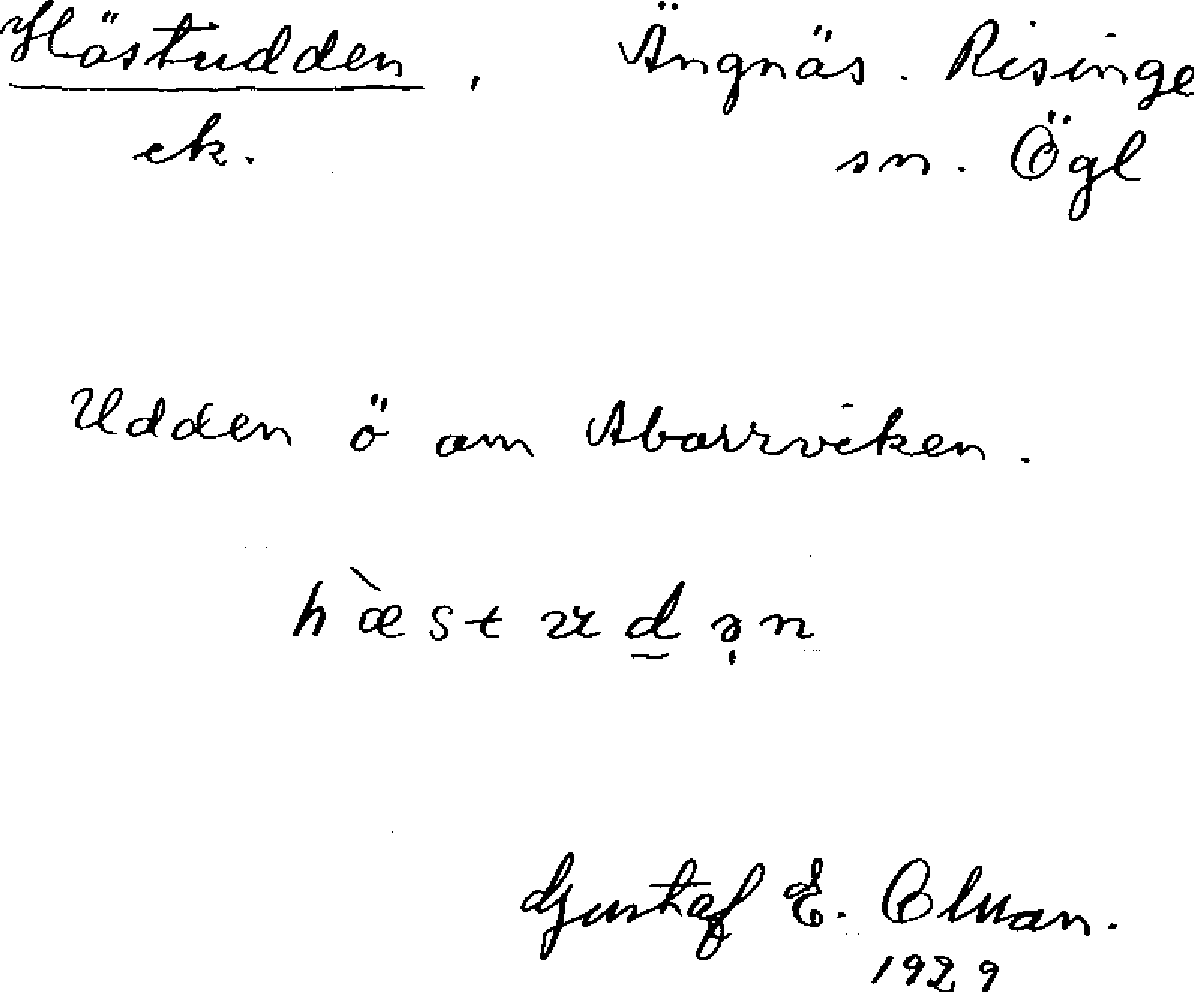 Hästudden, Ängnäs. Risinge
ek. sn. Ögl
Udden ö om Abborrviken.
hæ̀studən
Gustaf E.
1929